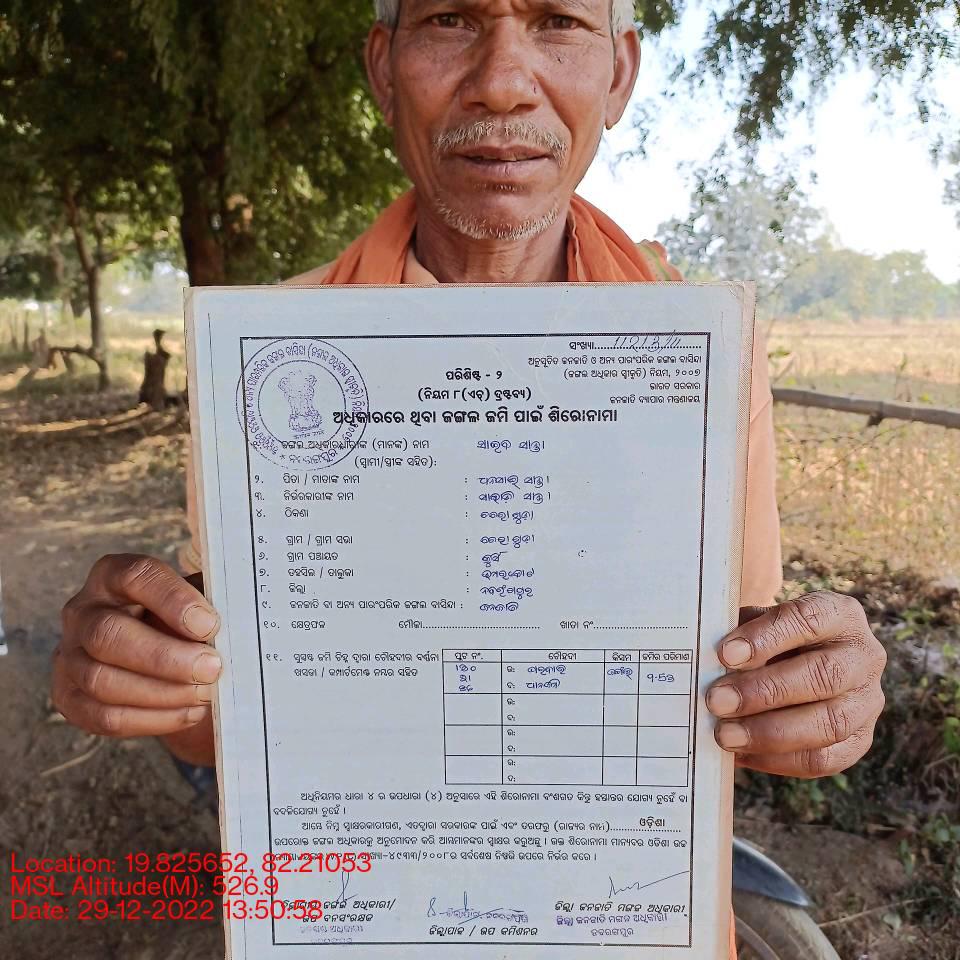 ସଂଖ୍ୟା
ଅନୁସୂଚିତ ଜନଜାତି ଓ ଅନ୍ୟ ପାରଂପରିକ ଜଙ୍ଗଲ ବାସିନ୍ଦା
(ଜଙ୍ଗଲ ଅଧିକାର ସ୍ୱୀକୃତି) ନିୟମ, ୨୦୦୭
ଭାରତ ସରକାର
ଜନଜାତି ବ୍ୟାପାର ମନ୍ତ୍ରଣାଳୟ
ପରିଶିଷ୍ଟ - ୨
(ନିୟମ ୮(ଏଚ୍) ଦ୍ରଷ୍ଟବ୍ୟ)
ଅଧିକାରରେ ଥିବା ଜଙ୍ଗଲ ଜମି ପାଇଁ ଶିରୋନାମା
ଜଙ୍ଗଲ ଅଧିକାରଧାରୀଙ୍କ (ମାନଙ୍କ) ନାମ
(ସ୍ୱାମୀ/ସ୍ତ୍ରୀଙ୍କ ସହିତ):
୨. ପିତା / ମାତାଙ୍କ ନାମ :
୩. ନିର୍ଭରକାରୀଙ୍କ ନାମ :
୪. ଠିକଣା :
୫. ଗ୍ରାମ / ଗ୍ରାମ ସଭା :
୬. ଗ୍ରାମ ପଞ୍ଚାୟତ :
୭. ତହସିଲ / ତାଲୁକା : ଉମରକୋଟ
୮. ଜିଲ୍ଲା : ନବରଂଗପୁର
୯. ଜନଜାତି ବା ଅନ୍ୟ ପାରଂପରିକ ଜଙ୍ଗଲ ବାସିନ୍ଦା : ଜନଜାତି
୧୦. କ୍ଷେତ୍ରଫଳ ମୌଜା ଖାତା ନଂ
୧୧. ସୁସ୍ପଷ୍ଟ ଜମି ଚିହ୍ନ ଦ୍ୱାରା ଚୌହଦୀର ବର୍ଣ୍ଣନା
ଖସଡା / କମ୍ପାର୍ଟମେଣ୍ଟ ନମ୍ବର ସହିତ
ପ୍ଲଟ ନଂ. ଚୌହଦୀ କିସମ ଜମିର ପରିମାଣ
ଉ:
ଦ:
ଉ:
ଦ:
ଉ:
ଦ:
ଅଧିନିୟମର ଧାରା ୪ ର ଉପଧାରା (୪) ଅନୁସାରେ ଏହି ଶିରୋନାମା ବଂଶଗତ କିନ୍ତୁ ହସ୍ତାନ୍ତର ଯୋଗ୍ୟ ନୁହେଁ ବା
ବଦଳିଯୋଗ୍ୟ ନୁହେଁ ।
ଆମ୍ଭେ ନିମ୍ନ ସ୍ୱାକ୍ଷରକାରୀଗଣ, ଏତଦ୍ୱାରା ସରକାରଙ୍କ ପାଇଁ ଏବଂ ତରଫରୁ (ରାଜ୍ୟର ନାମ) ଓଡ଼ିଶା
ଉପରୋକ୍ତ ଜଙ୍ଗଲ ଅଧିକାରକୁ ଅନୁମୋଦନ କରି ଆମମାନଙ୍କର ସ୍ୱାକ୍ଷର କରୁଅଛୁ । ଉକ୍ତ ଶିରୋନାମା ମାନ୍ୟବର ଓଡିଶା ଉଚ୍ଚ
ସଂଖ୍ୟା-୪୯୩୩/୨୦୦୮ର ସର୍ବଶେଷ ନିଷ୍ପତ୍ତି ଉପରେ ନିର୍ଭର କରେ ।
ଜଙ୍ଗଲ ଅଧିକାରୀ/
ଉପ ବନସଂରକ୍ଷକ
ଜିଲ୍ଲାପାଳ / ଉପ କମିଶନର
ଜିଲ୍ଲା ଜନଜାତି ମଙ୍ଗଳ ଅଧିକାରୀ
ଜିଲ୍ଲା ଜନଜାତି ମଙ୍ଗଳ ଅଧିକାରୀ
ନବରଙ୍ଗପୁର
Location: 19.825652, 82.21053
MSL Altitude(M): 526.9
Date: 29-12-2022 13:50:58